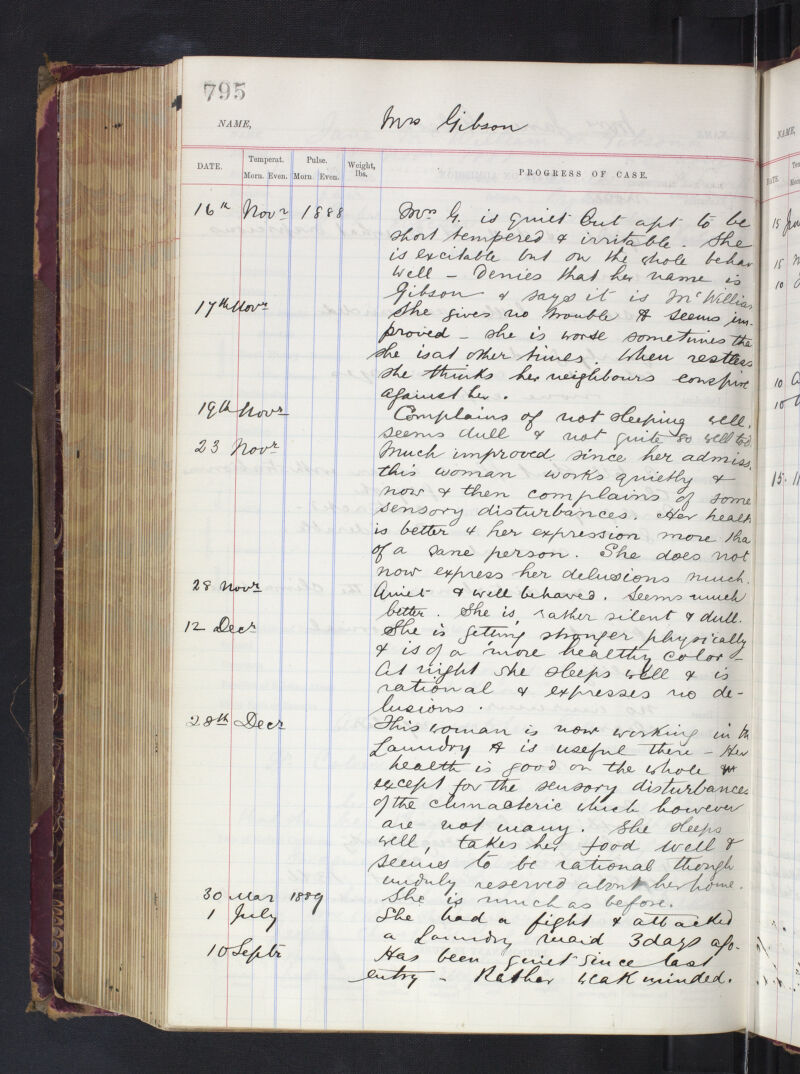 795
NAME, Mrs Gibson
DATE. Temperat. Pulse. Weight, lbs. PROGRESS OF CASE.
Morn. Even. Morn. Even.
16th Novr 1888 Mrs G. is quiet but apt to be
short tempered & irritable. She
is excitable but on the whole behav
well - Denies that her name is
Gibson & says it is McWillia
17th Novr She gives no trouble & seems im-
proved - she is worse sometimes tha
she is at other times. When restless
she thinks her neighbours conspire
against her.
19th Novr Complains of not sleeping well.
seems dull & not quite so well
23 Novr Much improved since her admiss.
this woman works quietly &
now & then complains of some
sensory disturbances. Her health
is better & her expression more tha
of a sane person. She does not
now express her delusions much.
28 Novr Quiet & well behaved. Seems much
better. She is rather silent & dull.
12 Decr She is getting stronger physically
& is of a more healthy color -
At night she sleeps well & is
rational & expresses no de-
lusions.
28th Decr This woman is now working in th
Laundry & is useful there - Her
health is good on the whole
except for the sensory disturbances
of the climacteric which however
are not many. She sleeps
well, takes her food well &
seems to be rational though
unduly reserved about her home.
30 Mar 1889 She is much as before.
1 July She had a fight & attacked
a Laundry maid 3 days ago.
10 Septr Has been quiet since last
entry - Rather weak minded.
NAME,
15
15
10
10
10
15.